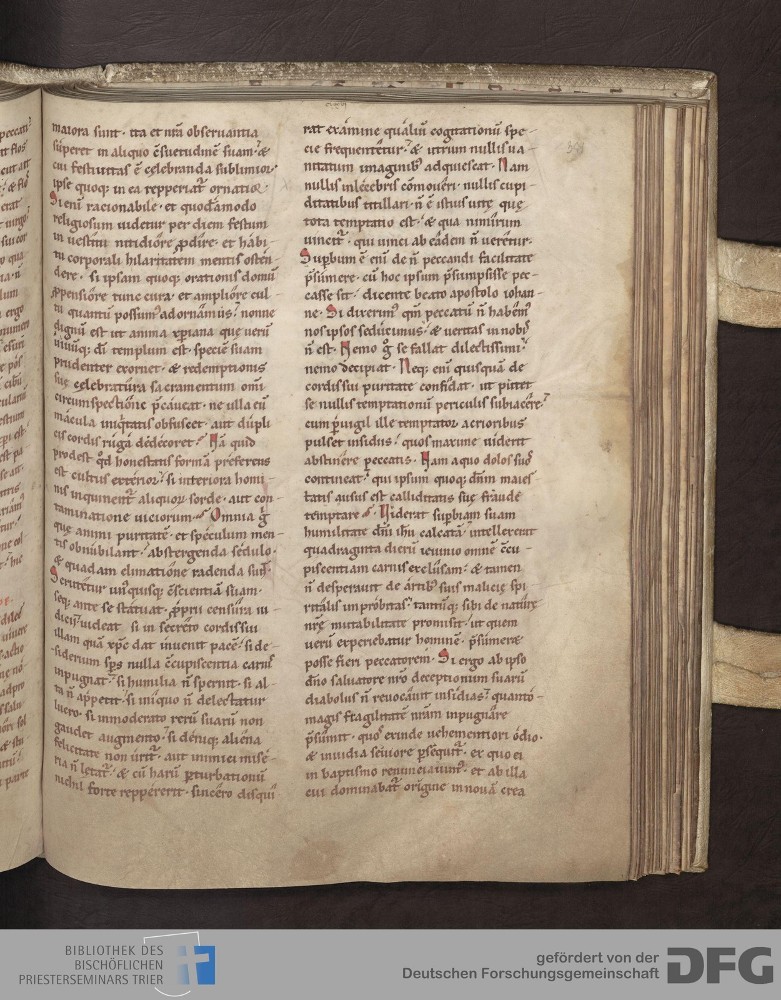 maiora sunt. ita et nr̄a obseruantia
superet in aliquo c̄suetudinē suam. &
cui festiuitas ē celebranda sublimior.
ipse quoq; in ea repperiat᷑ ornatior.
Si eni racionabile. et quodāmodo
religiosum uidetur per diem festum
in uestitu nitidiore ꝓdire. et habi
tu corporali hilaritatem mentis osten
dere. si ipsam quoq; orationis domū
ꝓpensiore tunc cura. et ampliore cul
tu quantū possum᷒ adornam᷒. nonne
dignū est ut anima xp̄iana que uerū
uiuūq; dī templum est. speciē suam
prudenter exornet. & redemptionis
suę celebratura sacramentum om̄i
circumspectione p̄caueat. ne ulla eū
macula iniq̄tatis obfuscet. aut dupli
cis cordis ruga dedecoret. Nā quid
prodest qd̄ honestatis formā preferens
est cultus exterior. si interiora homi
nis inquinent᷑ aliquor sorde. aut con
taminatione uiciorum. Omnia g̊
que animi puritatē. et speculum men
tis obnubilant. abstergenda sedulo.
& quadam elimatione radenda sunt.
Scrutetur un᷒quisq; c̄scientiā suam.
seq; ante se statuat. ꝓprii censura iu
dicii. uideat si in secreto cordis sui
illam quā xp̄c dat inuenit pacē. si de
siderium sp̄s nulla c̄cupiscentia carnis
inpugnat. si humilia n̄ spernit. si al
ta n̄ appetit. si iniquo n̄ delectatur
lucro. si inmoderato rerū suarū non
gaudet augmento. si deniq; aliena
felicitate non urit᷑. aut inimici mise
ria n̄ letat᷑. & cū harū ꝑturbationū
nichil forte reppererit. sincero disqui
rat examine qualiū cogitationū spe
cie frequentetur. & utrum nullis ua
nitatum imaginib᷒ adquiescat. Nam
nullis inlecebris cōmoueri. nullis cupi
ditatibus titillari. n̄ ē istius uitę que
tota temptatio est. & qua nimirum
uincit᷑. qui uinci ab eadem n̄ ueretur.
Supbum ē eni de n̄ peccandi facilitate
p̄sumere. cū hoc ipsum p̄sumpsisse pec
casse sit. dicente beato apostolo iohan
ne. Si dixerim᷒ qm̄ peccatū n̄ habem᷒
nos ipsos seducimus. & ueritas in nob᷒
n̄ est. Nemo g̊ se fallat dilectissimi.
nemo decipiat. Neq; eni quisquā de
cordis sui puritate confidat. ut putet
se nullis temptationū periculis subiacere.
cum p̄uigil ille temptator acrioribus
pulset insidiis. quos maxime uiderit
abstinere peccatis. Nam a quo dolos suos
contineat. qui ipsum quoq; dn̄m maies
tatis ausus est calliditatis suę fraude
temptare. Uiderat supbiam suam
humilitate dn̄i ihū calcatā. intellexerat
quadraginta dierū ieiunio omnē c̄cu
piscentiam carnis exclusam. & tamen
n̄ desperauit de artib᷒ suis malicię spi
ritalis improbitas. tantūq; sibi de naturę
nrę mutabilitate promisit. ut quem
uerū experiebatur hominē. p̄sumeret
posse fieri peccatorem. Si ergo ab ipso
dn̄o saluatore nr̄o deceptionum suarū
diabolus n̄ reuocauit insidias. quanto
magis fragilitatē nr̄am inpugnare
p̄sumit. quos exinde uehementiori odio.
& inuidia seuiore ꝑsequit᷑. ex quo ei
in baptismo renunciauim᷒. et ab illa
cui dominabat᷑ origine in nouā crea
BIBLIOTHEK DES
BISCHÖFLICHEN
PRIESTERSEMINARS TRIER
gefördert von der
Deutschen Forschungsgemeinschaft
DFG